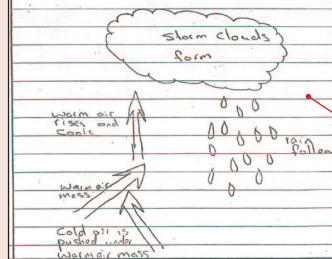 Storm Clouds
form
warm air
rises and
cools
rain
warm air
mass
Cold air is
pushed under
warm air mass